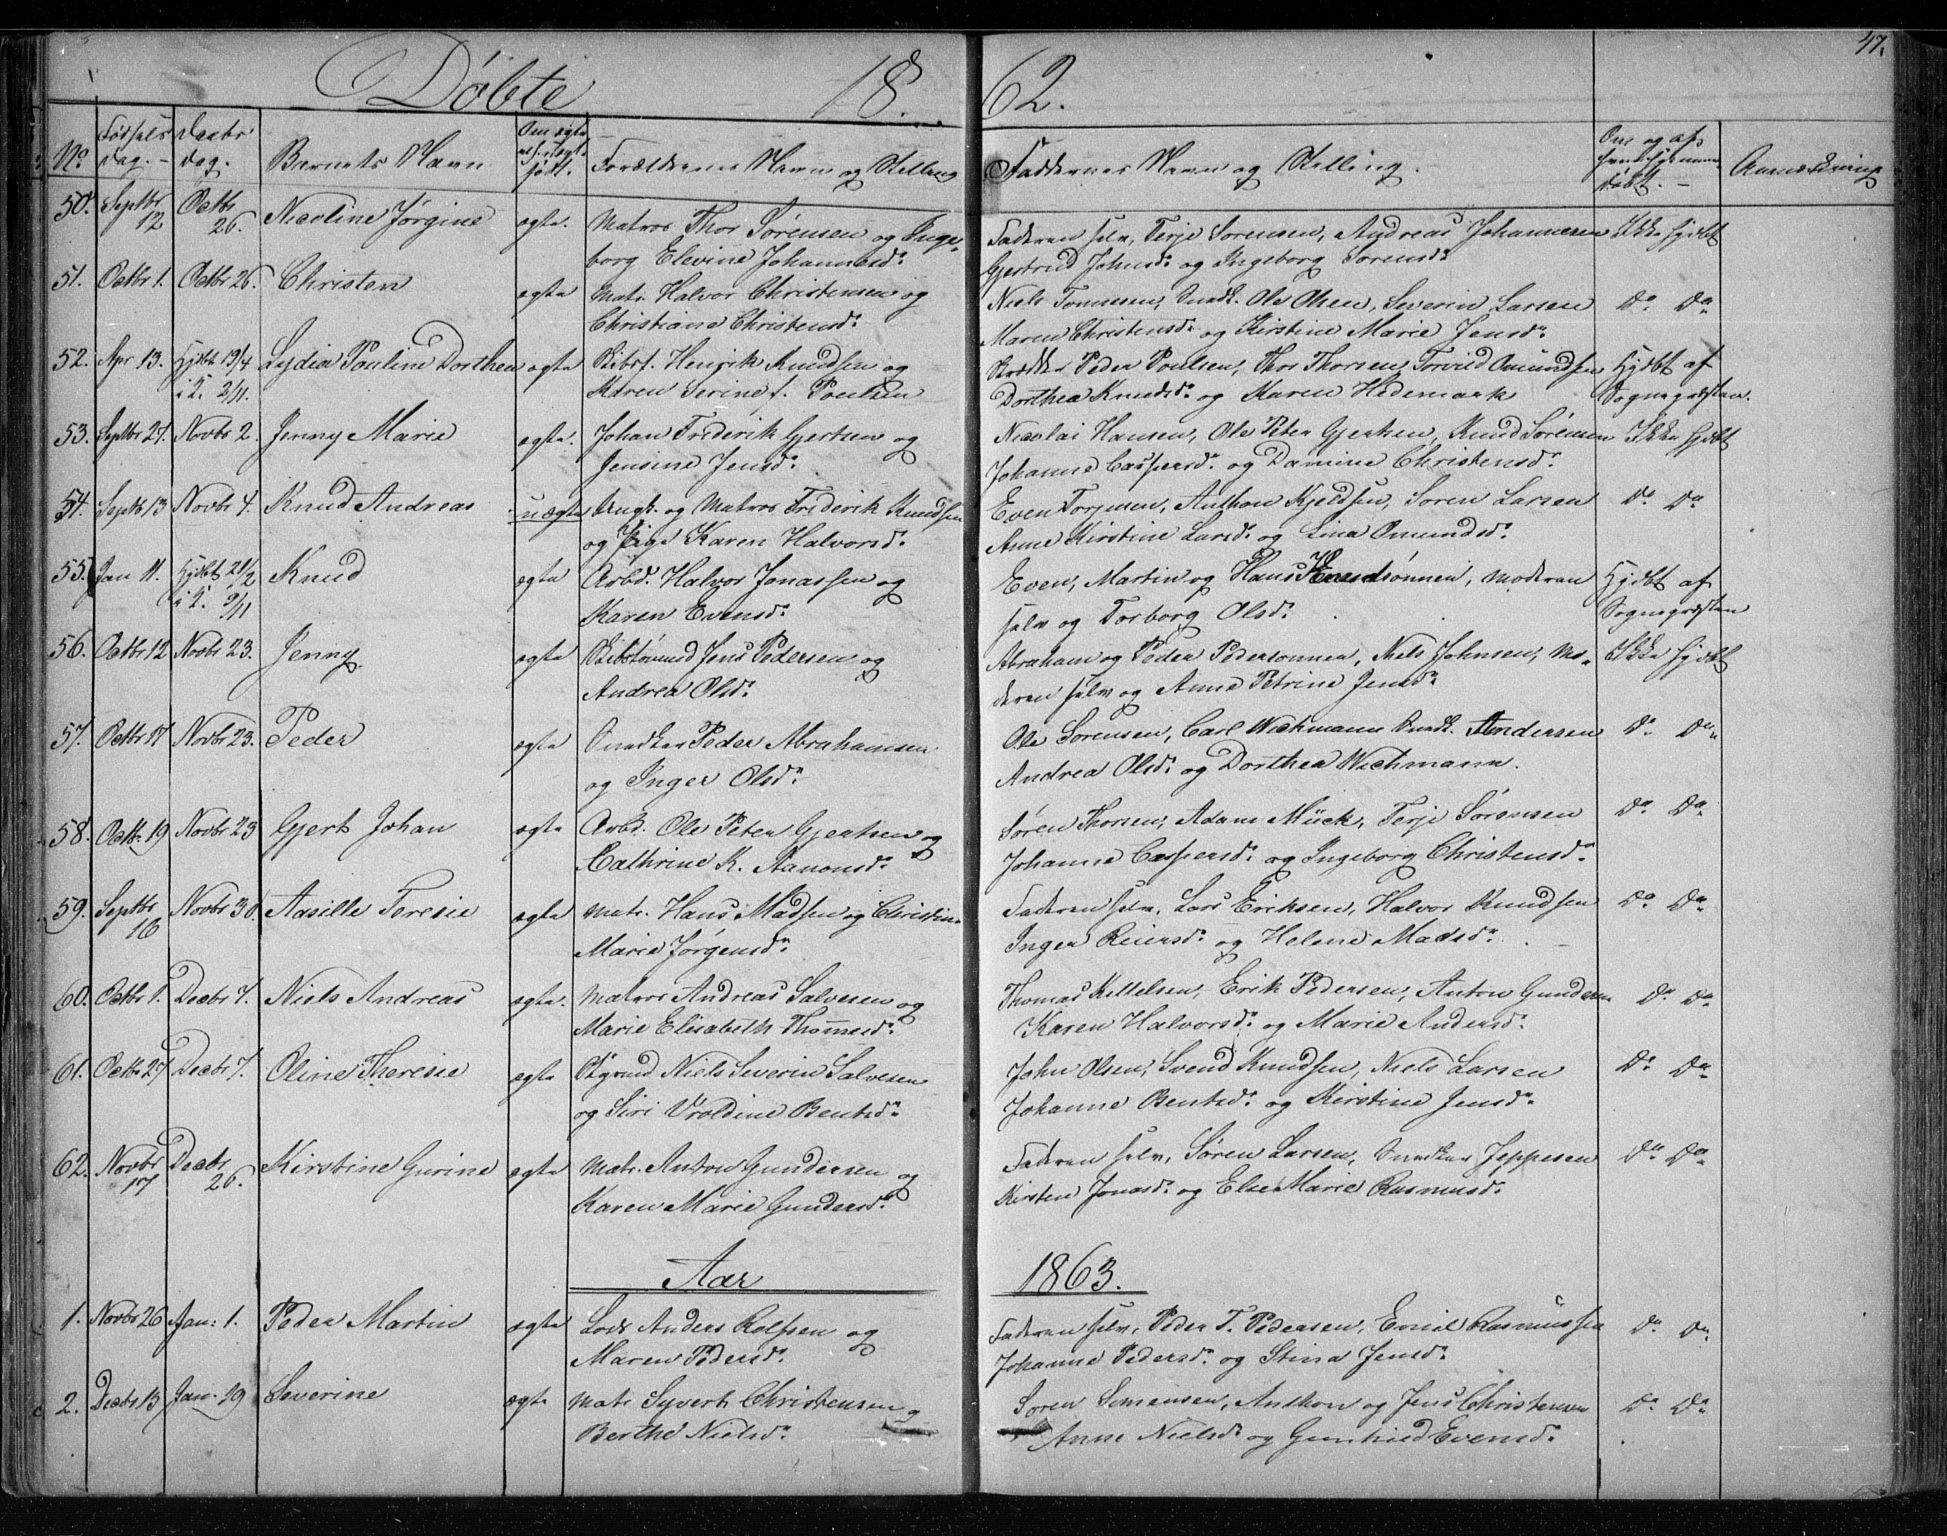 47.
Døbte 1862.
No
Fødsels dag.
Daabs dag.
Barnets Navn
Om ægte el. uægte født.
Forældrenes Navn og Stilling
Faddernes Navn og Stilling.
Om og af hvem hjemmedøbt.
Anmærkning
50. Septbr 12 Octbr 26. Nicoline Jørgine ægte. Matros Thor Sørensen og Inge- Faderen selv, Terje Sørensen, Andreas Johannesen Ikke hjdbt
borg Elevine Johannesd. Gjertrud Johnsd. og Ingeborg Sørensd.
51. Octbr 1. Octbr 26. Christen ægte Matr. Halvor Christensen og Niels Tommesen, Snedk. Ole Olsen, Severin Larsen Do Do
Christiane Christensd. Maren Christensd. og Kirstine Marie Jensd.
52. Apr 13. Hjdbt 19/4 Lydia Pouline Dorthea ægte Skibsf. Henrik Knudsen og Skrædder Peder Poulsen, Thor Thorsen, Torvild Omundsen Hjdbt af
i K. 2/11. Maren Serine f. Poulsen Dorthea Knudsd. og Maren Hedemark Sognepræsten.
53. Septbr 27. Novbr 2. Jenny Marie ægte. Johan Frederik Gjertsen og Nicolai Hansen, Ole Peter Gjertsen, Knud Sørensen Ikke hjdbt
Jensine Jensd. Johanne Caspersd. og Damine Christensd.
54. Septb 13 Novbr 4. Knud Andreas uægte Ungk. og Matros Frederik Knudsen Even Torjusen, Anthon Kjeldsen, Søren Larsen Do Do
og Pige Karen Halvorsd. Anne Kirstine Larsd. og Lina Omundsd.
55. Jan 11. Hjdbt 21/2 Knud ægte Arbd. Halvor Jonassen og Even, Martin og Hans Evensønner, Moderen Hjdbt af
i K. 9/11 Karen Evensd. selv og Torborg Olsd. Sognepræsten
56. Octbr 12 Novbr 23. Jenny ægte Skibstømmd Jens Pedersen og Abraham og Peder Pedersønner, Niels Johnsen, Mo- Ikke hjdbt
Andrea Olsd. deren selv og Anne Petrine Jensd.
57. Octbr 17 Novbr 23. Peder ægte Snedker Peder Abrahamsen Ole Sørensen, Carl Wichmann Snedk. Andersen Do Do
og Inger Olsd. Andrea Olsd. og Dorthea Wichmann.
58. Octbr. 19 Novbr 23 Gjert Johan ægte Arbd. Ole Peter Gjertsen og Søren Thorsen, Adam Mück, Terje Sørensen Do Do
Cathrine K. Aanonsd. Johanne Caspersd. og Ingeborg Christensd.
59. Septbr 16 Novbr 30. Aasille Teresie ægte Matr. Hans Madsen og Christine Faderen selv, Lars Eriksen, Halvor Knudsen Do Do
Marie Jørgensd. Inger Reiersd. og Helene Madsd.
60. Octbr 1. Decbr 7. Niels Andreas ægte. Matros Andreas Salvesen og Thomas Kittelsen, Erik Pedersen, Anton Gundersen Do Do
Marie Elisabeth Thomesd. Karen Halvorsd. og Marie Andersd.
61. Octbr 27 Decbr 7. Oline Theresie ægte Niels Severin Salvesen John Olsen, Svend Knudsen, Niels Larsen Do Do
og Siri Vroldine Bentsd. Johanne Bentsd. og Kirstine Jensd.
62. Novbr 17 Decbr 26. Kirstine Gurine ægte Matr. Anton Gundersen og Faderen selv, Søren Larsen, Snedker Jeppesen Do Do
Karen Marie Gundersd. Kirsten Jonasd. og Else Marie Rasmusd.
Aar 1863.
1. Novbr 26 Jan: 1. Peder Martin ægte Lods Anders Rolfsen og Faderen selv, Peder T. Pedersen, Emil Rasmussen Do Do
Maren Pedersd. Johanne Pedersd. og Stina Jensd.
2. Decbr 13 Jan. 19 Severine ægte Matr Syvert Christensen og Søren Simensen, Anthon og Jens Christensen Do Do
Berthe Nielsd. Anne Nielsd og Gunhild Evensd.